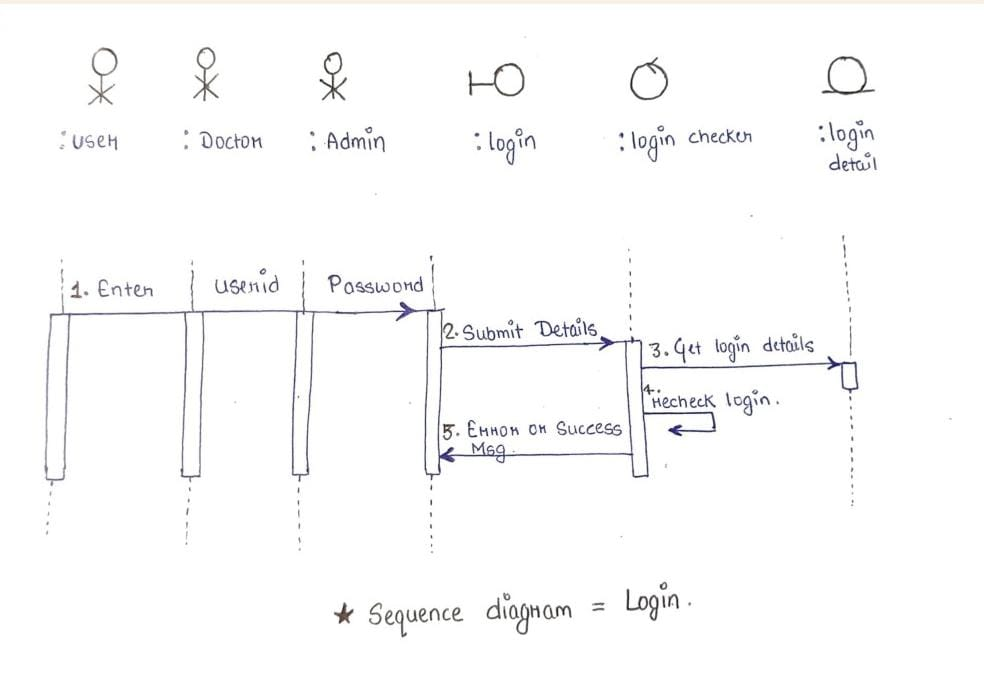 : User
: Doctor
: Admin
: login
: login checker
: login
detail
1. Enter userid Password
2. Submit Details
3. Get login details
4.
recheck login.
5. Error or Success
Msg.
★ Sequence diagram = Login.